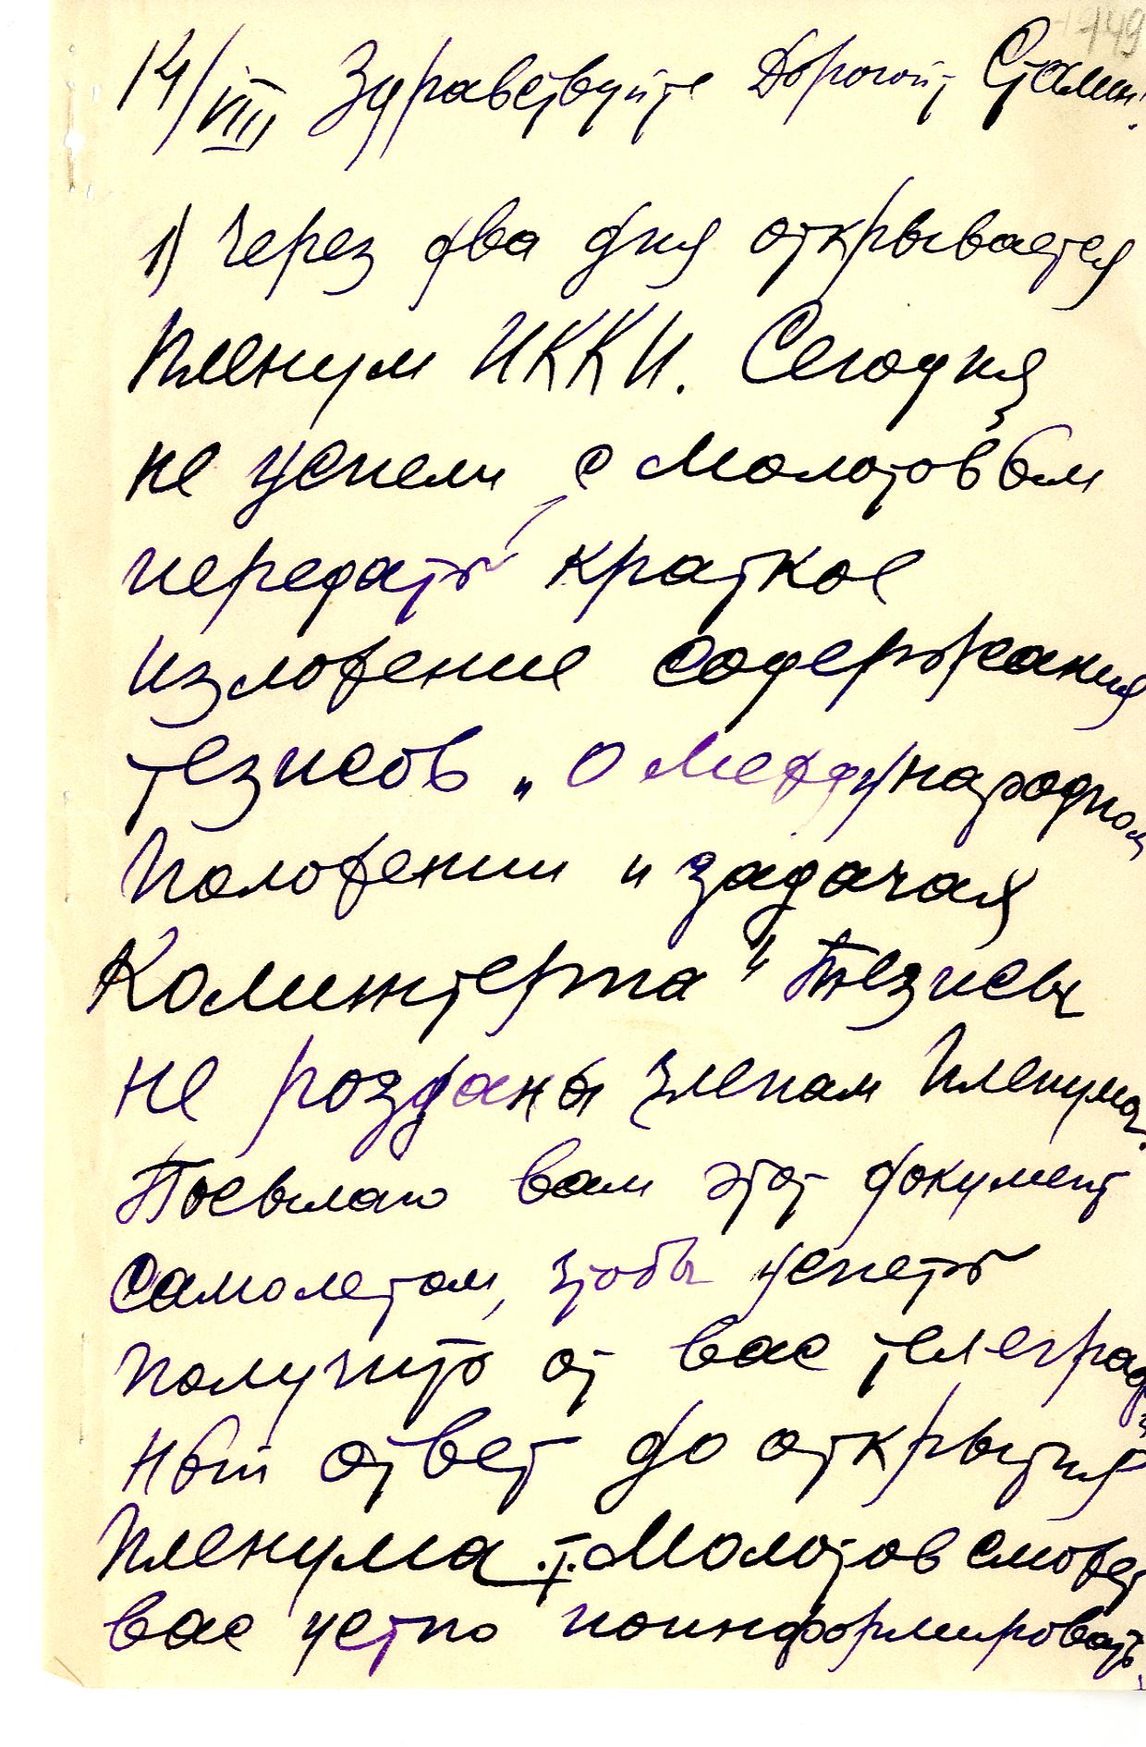 149
14/VIII Здравствуйте Дорогой Сталин!
1) Через два дня открывается
Пленум ИККИ. Сегодня
не успели с Молотовым
передать краткое
изложение содержания
тезисов „О Международном
Положении и задачах
Коминтерна" Тезисы
не розданы членам Пленума.
Посылаю вам этот документ
самолетом, чтобы успеть
получить от вас телеграф
ный ответ до открытия
Пленума. т. Молотов сможет
вас устно поинформировать,